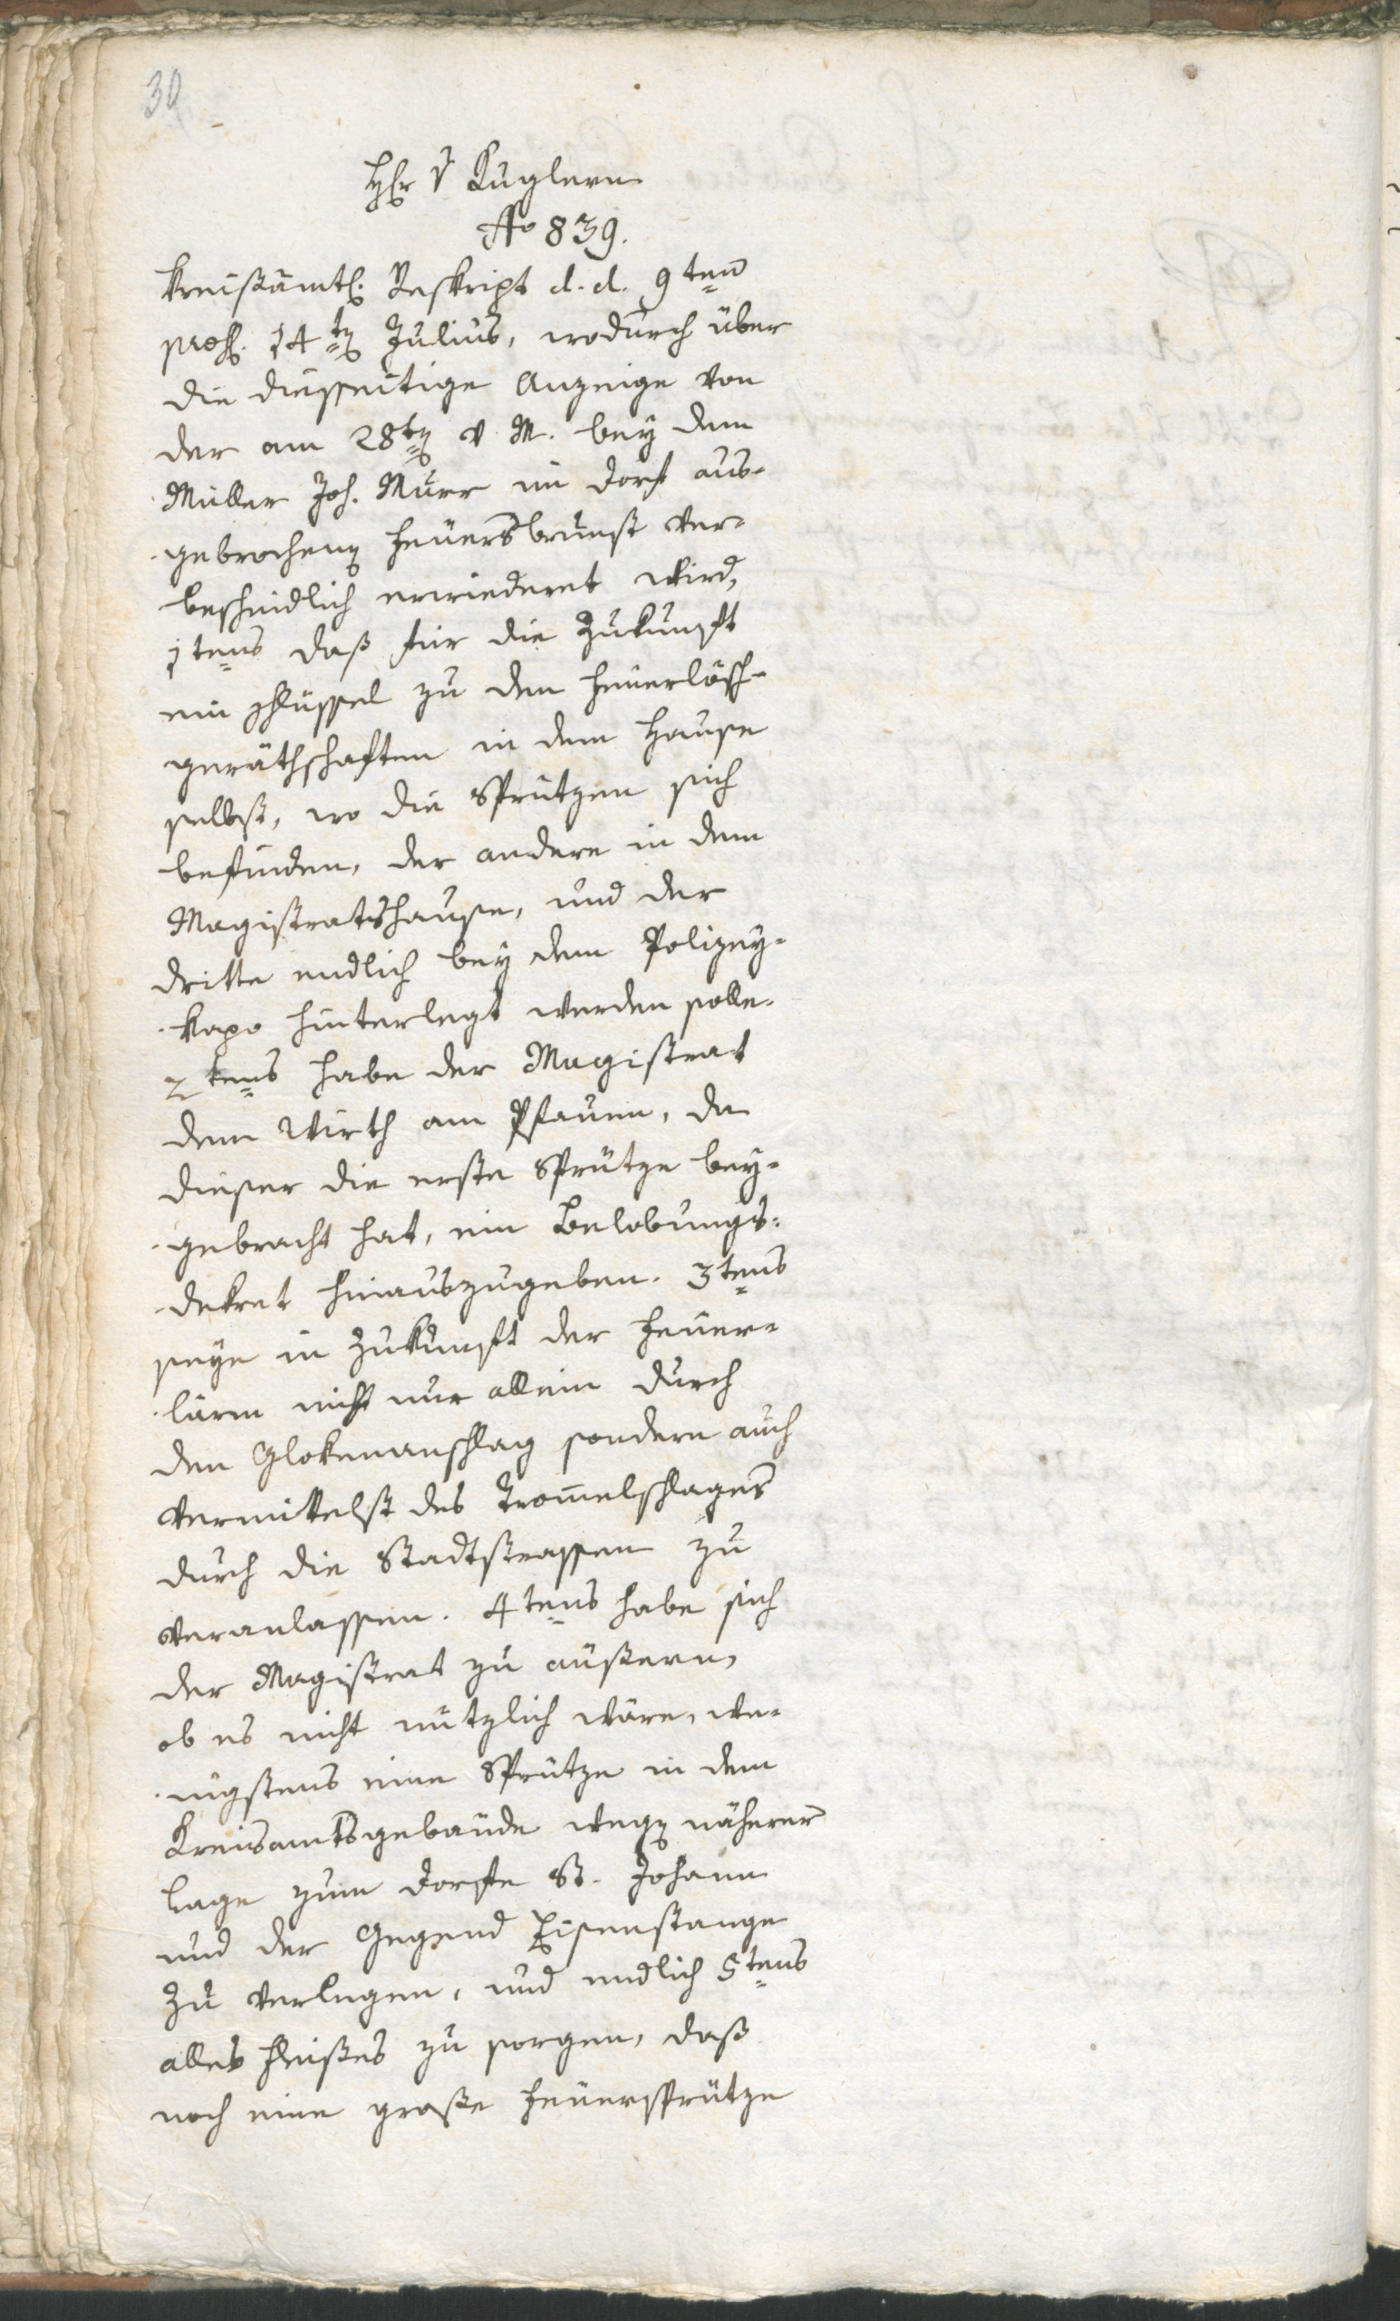 30
Hr v Kuglern
No 839.
Kreisämtl. Reskript d. d. 9ten
praes. 14ten Julius, wodurch über
die diesseitige Anzeige von
der am 28ten v. M. bey dem
Müller Joh. Murr im Dorf aus-
gebrochenen Feuersbrunst ver-
bescheidlich erwiedert wird,
1tens daß für die Zukunft
ein Schlüssel zu den Feuerlösch-
geräthschaften in dem Hause
selbst, wo die Sprützen sich
befinden, der andere in dem
Magistratshause, und der
dritte endlich bey dem Polizey-
kapo hinterlegt werden solle.
2tens habe der Magistrat
dem Wirth am Pfauen, da
dieser die erste Sprütze bey-
gebracht hat, ein Belobungs-
dekret hinauszugeben. 3tens
seye in Zukunft der Feuer-
lärm nicht nur allein durch
den Glokenanschlag sondern auch
vermittelst des Trom̄elschlages
durch die Stadtstrassen zu
veranlassen. 4tens habe sich
der Magistrat zu äußern,
ob es nicht nützlich wäre, we-
nigstens eine Sprütze in dem
Kreisamtsgebäude wegen näherer
Lage zum Dorfe St. Johann
und der Gegend Eisenstange
zu verlegen, und endlich 5tens
alles Fleißes zu sorgen, daß
noch eine große Feuersprütze